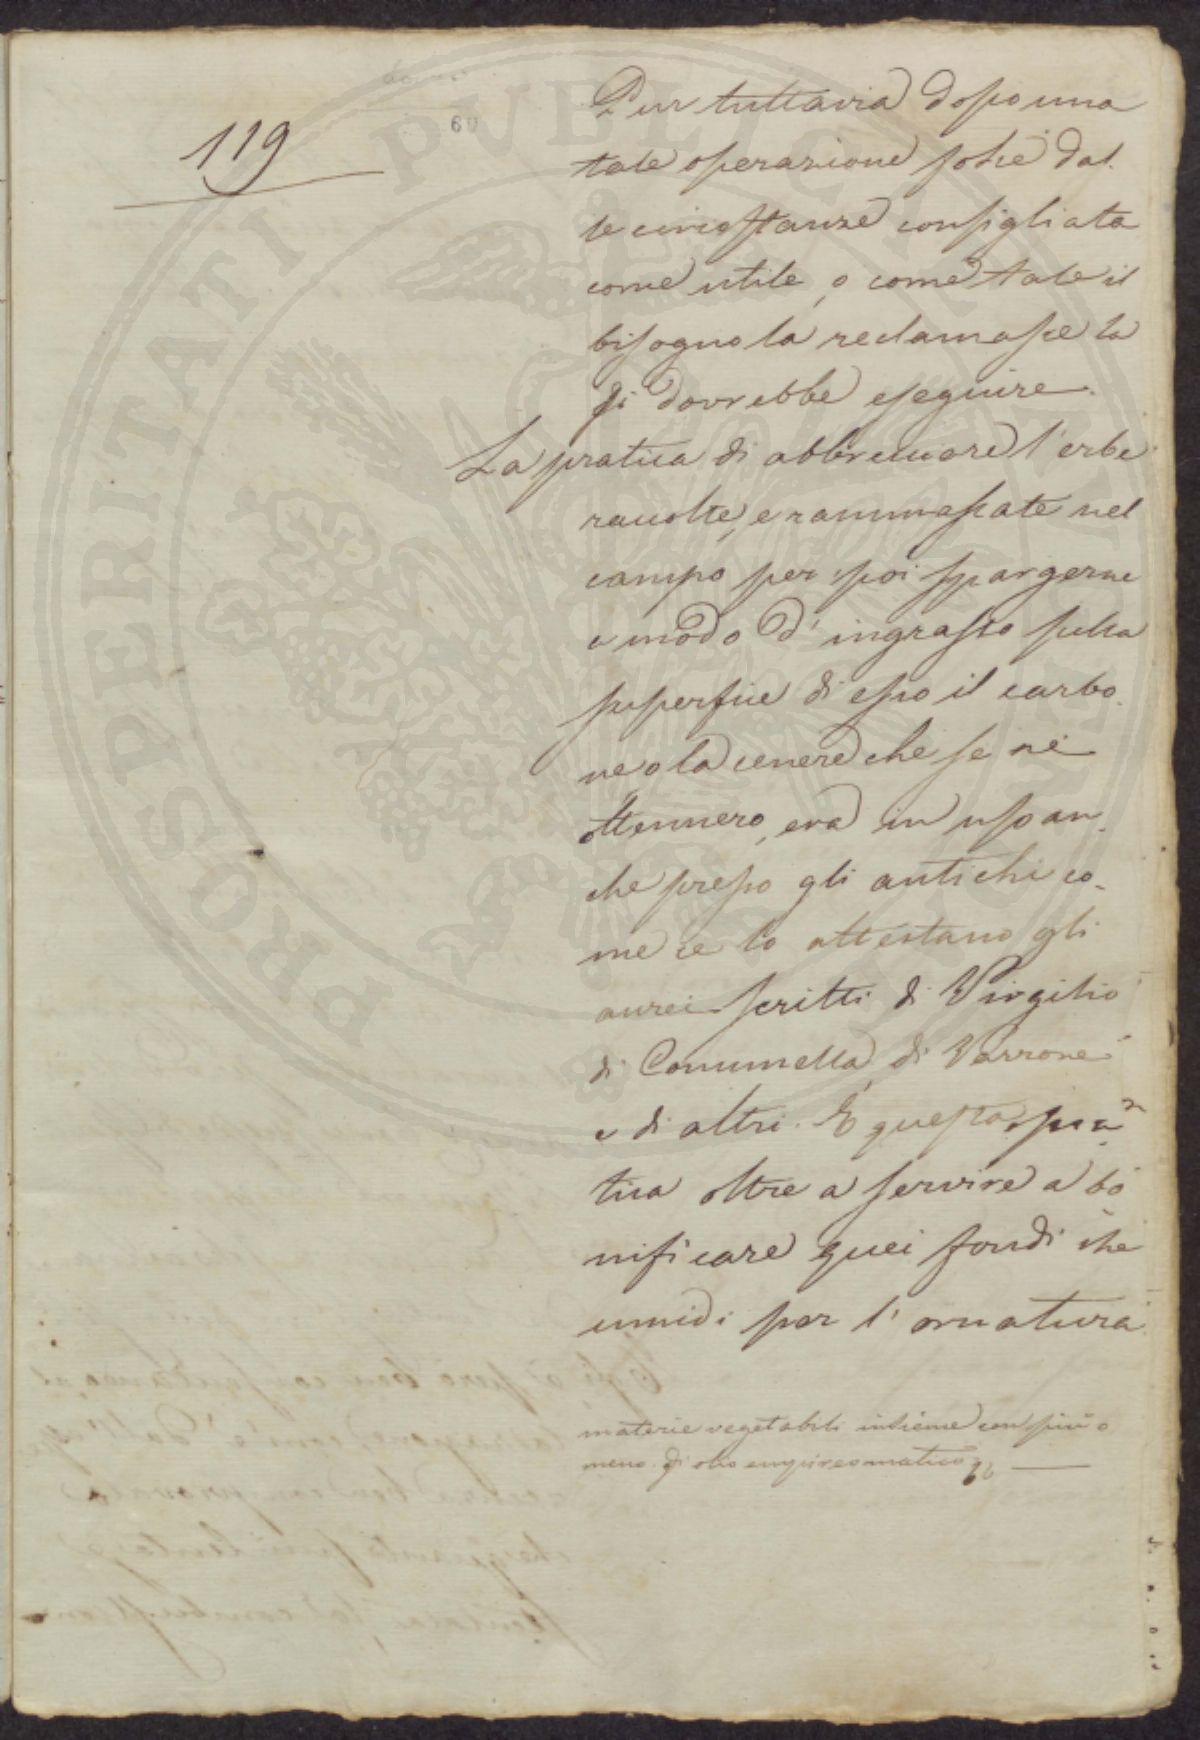 60
119
Pur tuttavia dopo una
tale operazione fosse dal
le circostanze consigliata
come utile, o come tale il
bisogno la reclamasse la
si dovrebbe eseguire.
La pratica di abbrucciare l'erbe
raccolte, e rammassate nel
campo per poi spargerne
a modo d'ingrasso sulla
superficie di esso il carbo
ne o la cenere che se ne
ottennero, era in uso an
che presso gli antichi co-
me ce lo attestano gli
aurei scritti di Virgilio
di Comumella, di Varrone
e di altri. E questa pra
tica oltre a servire a bo
nificare quei fondi che
umidi per l'
materie vegetabili insieme con più o
meno di olio empireomatico
PROSPERITATI PUBLICAE